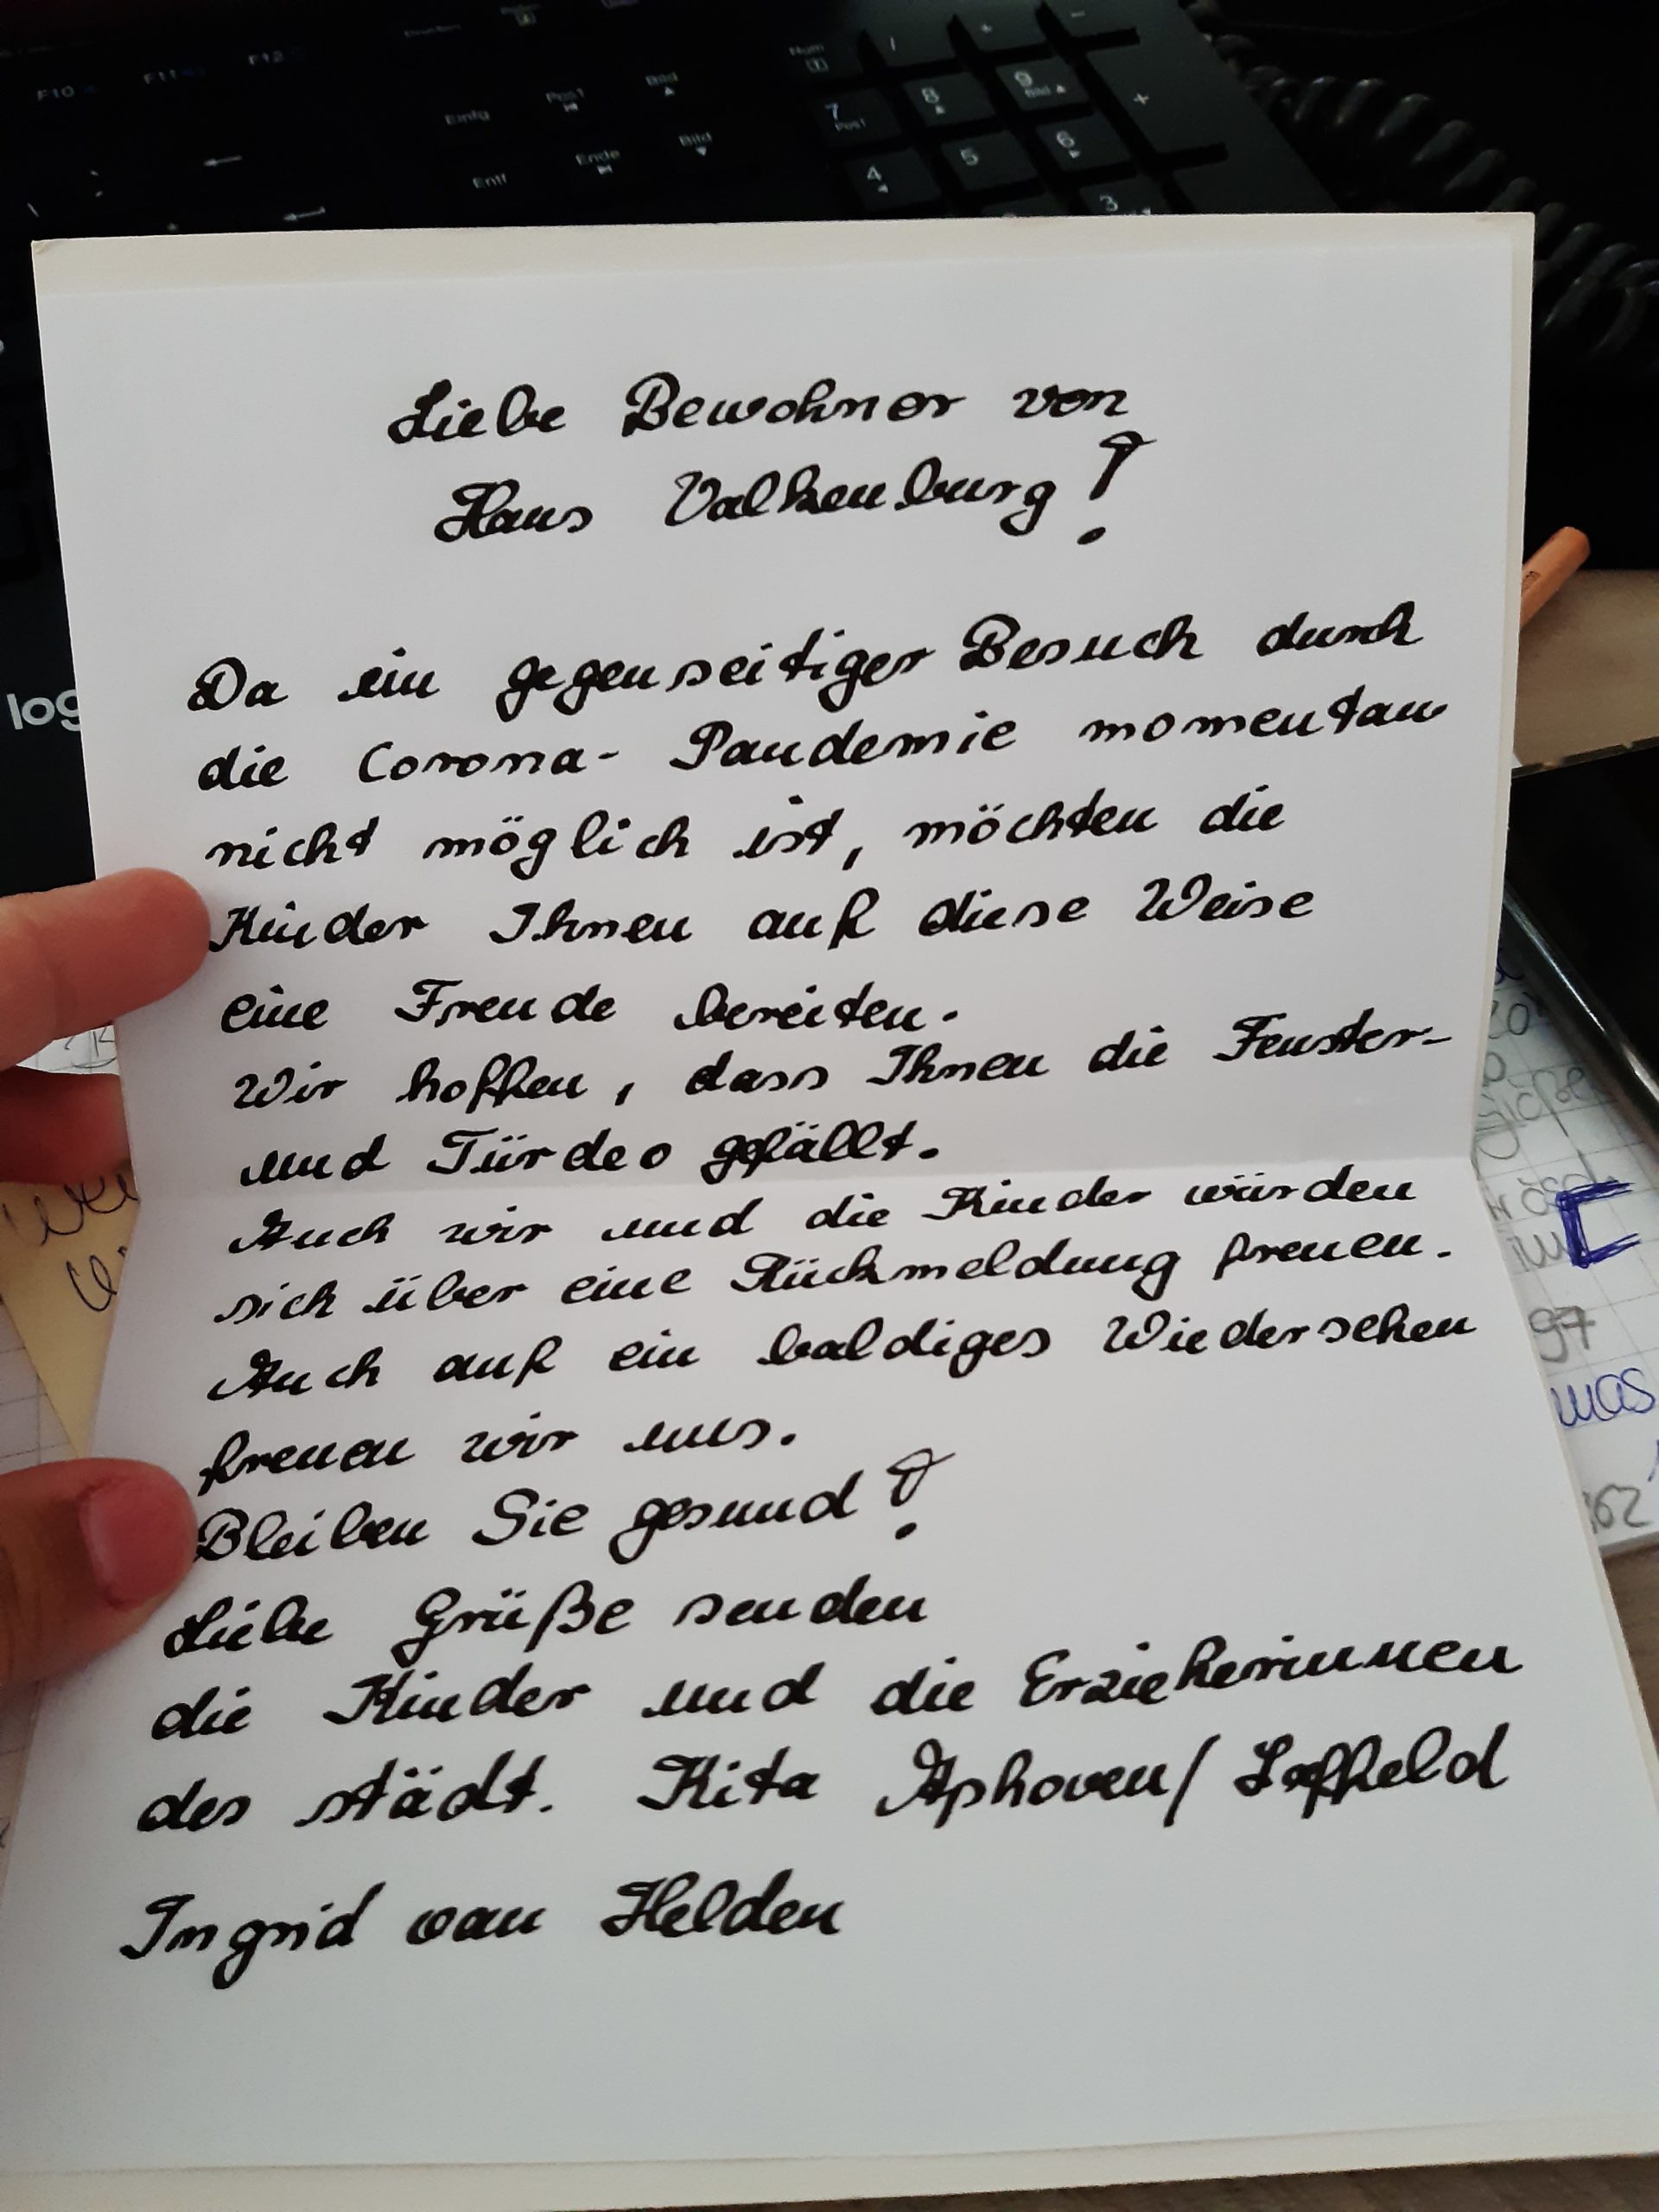 F10
F11
F12
Einfg
Pos1
Bild
Num
/
-
Entf
Ende
Bild
7
Pos1
8
9
Bild
+
4
5
6
3
log
Liebe Bewohner von
Haus Valkenburg!
Da ein gegenseitiger Besuch durch
die Corona- Pandemie momentan
nicht möglich ist, möchten die
Kinder Ihnen auf diese Weise
eine Freude bereiten.
Wir hoffen, dass Ihnen die Fenster-
und Türdeo gefällt.
Auch wir und die Kinder würden
sich über eine Rückmeldung freuen.
Auch auf ein baldiges Wiedersehen
freuen wir uns.
Bleiben Sie gesund!
Liebe Grüße senden
die Kinder und die Erzieherinnen
des städt. Kita Aphoven/ Laffeld
Ingrid van Helden
97
was
62